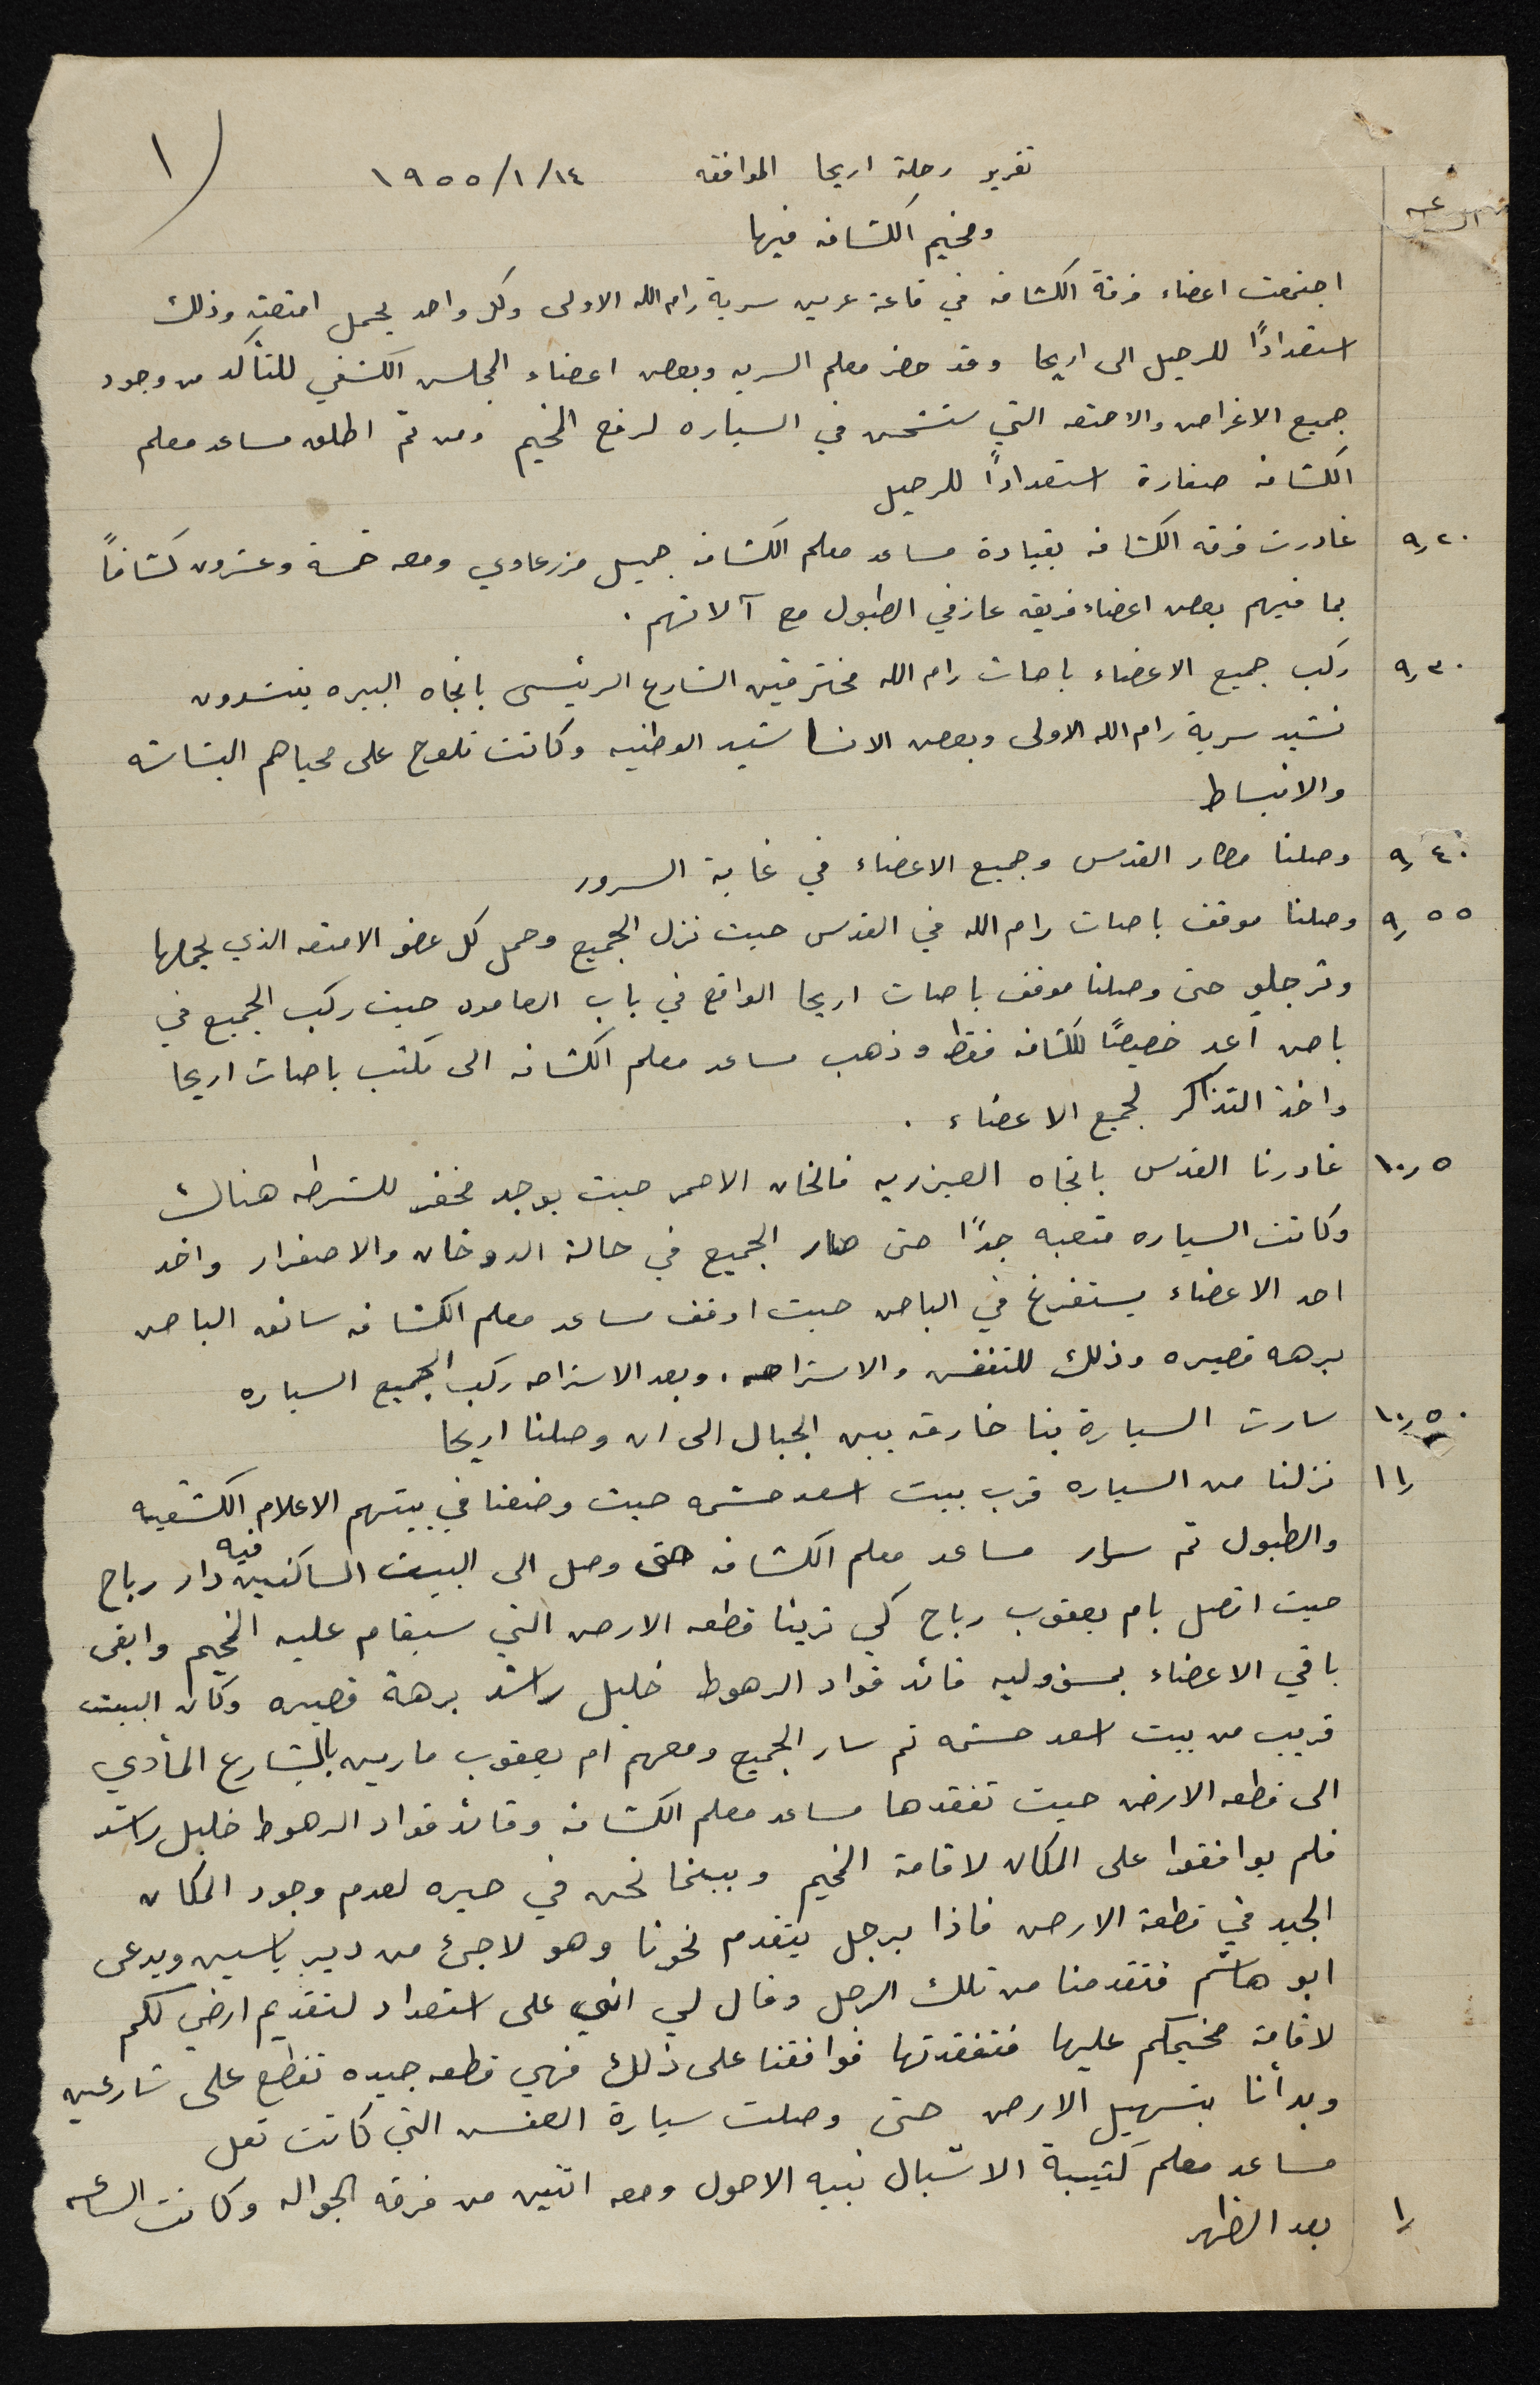 ١
تقرير رحلة اريحا الموافقه ١٤/١/١٩٥٥
ومخيم الكشافه فيها
الساعه
اجتمعت اعضاء فرقة الكشافه في قاعة عرين سرية رام الله الاولى وكل واحد يحمل امتعته وذلك
استعدادًا للرحيل الى اريحا وقد حضر معلم السريه وبعض اعضاء المجلس الكشفي للتأكد من وجود
جميع الاغراض والامتعه التي ستشحن في السياره لرفع المخيم ومن ثم اطلق مساعد معلم
الكشافه صفارة استعدادًا للرحيل
٩٫٢٠ غادرت فرقه الكشافه بقيادة مساعد معلم الكشافه جميل مزرعاوي ومعه خمسة وعشرون كشافاً
بما فيهم بعض اعضاء فريقه عازفي الطبول مع آلاتهم .
٩٫٣٠ ركب جميع الاعضاء باصات رام الله مخترقين الشارع الرئيسي باتجاه البيره ينشدون
نشيد سرية رام الله الاولى وبعض الاناشيد الوطنيه وكانت تلوح على محياهم البشاشه
والانبساط
٩٫٤٠ وصلنا مطار القدس وجميع الاعضاء في غاية السرور
٩٫٥٥ وصلنا موقف باصات رام الله في القدس حيث نزل الجميع وحمل كل عضو الامتعه الذي يحملها
وترجلو حتى وصلنا موقف باصات اريحا الواقع في باب العامود حيث ركب الجميع في
باص أعد خصيصًا للكشافه فقط وذهب مساعد معلم الكشافه الى مكتب باصات اريحا
واخذ التذاكر لجميع الاعضاء .
١٠٫٥ غادرنا القدس باتجاه العيزريه فالخان الاحمر حيث يوجد مخفر للشرطه هناك
وكانت السياره متعبه جدًا حتى صار الجميع في حالة الدوخان والاصفرار واخد
احد الاعضاء يستفرغ في الباص حيث اوقف مساعد معلم الكشافه سائق الباص
برهه قصيره وذلك للتنفس والاستراحه . وبعد الاستراحه ركب الجميع السياره
١٠٫٥٠ سارت السيارة بنا خارقه بين الجبال الى ان وصلنا اريحا
١١٫ نزلنا من السياره قرب بيت اسعد حشمه حيث وضعنا في بيتهم الاعلام الكشفيه
والطبول ثم سار مساعد معلم الكشافه حتى وصل الى البيت الساكنين فيه دار رباح
حيث اتصل بام يعقوب رباح كي ترينا قطعه الارض التي سيقام عليه المخيم وابقى
باقي الاعضاء بمسؤوليه قائد قواد الرهوط خليل راشد برهة قصيره وكان البيت
قريب من بيت اسعد حشمه ثم سار الجميع ومعهم ام يعقوب مارين بالشارع المأدي
الى قطعه الارض حيث تفقدها مساعد معلم الكشافه وقائد قواد الرهوط خليل راشد
فلم يوافقوا على المكان لاقامة المخيم وبينما نحن في حيره لعدم وجود المكان
الجيد في قطعة الارض فاذا برجل يتقدم نحونا وهو لاجئ من دير ياسين ويدعى
ابو هاشم فتقدمنا من تلك الرجل وقال لي انني على استعداد لتقديم ارضي لكم
لاقامة مخيمكم عليها فتفقدتها فوافقنا على ذلك فهي قطعه جيده تقطع على شارعين
وبدأنا بتسهيل الارض حتى وصلت سيارة العفش التي كانت تقل
مساعد معلم كتيبة الاشبال نبيه الاحول ومعه اثنين من فرقه الجواله وكانت الساعه
١٫ بعد الظهر